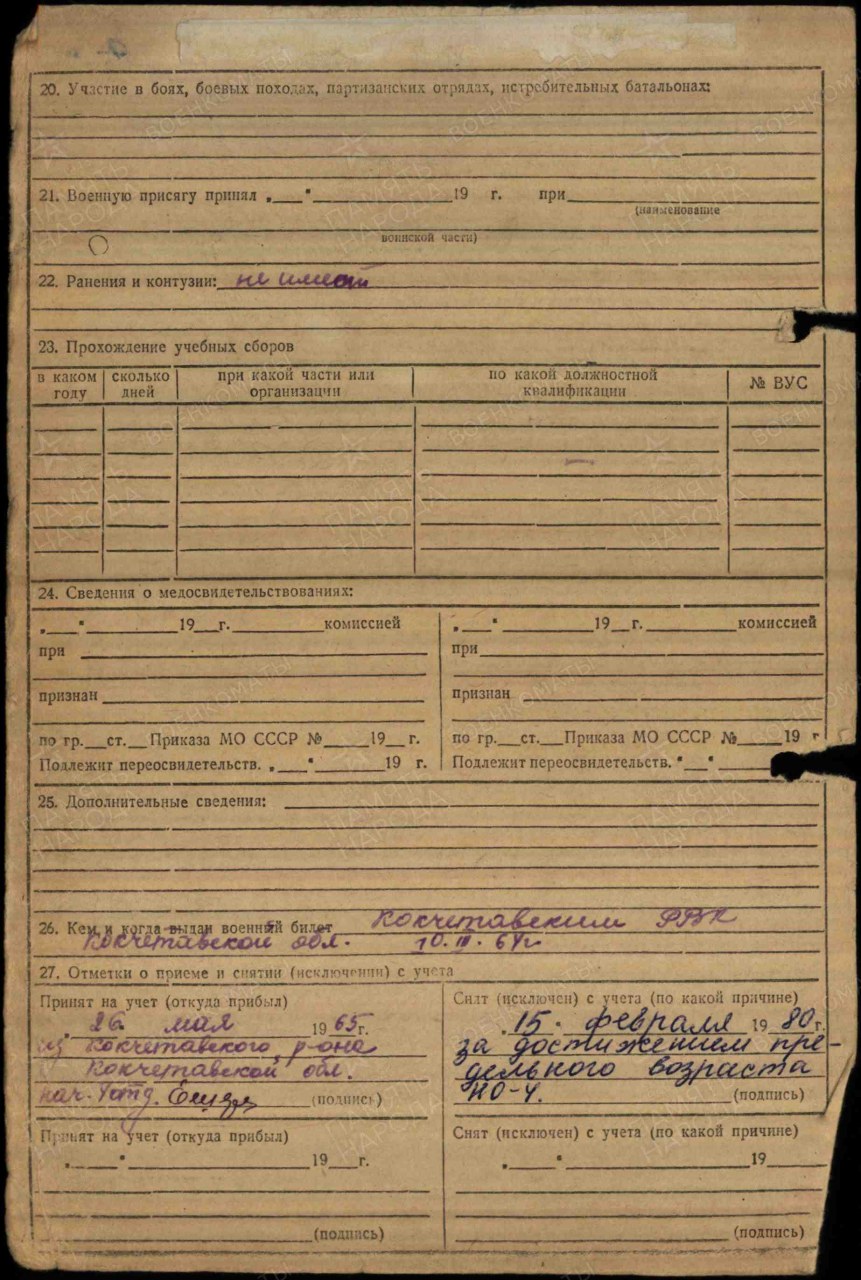 20. Участие в боях, боевых походах, партизанских отрядах, истребительных батальонах:
21. Военную присягу принял „___" ___ 19 г. при ___
(наименование
воинской части)
22. Ранения и контузии: не имеет
23. Прохождение учебных сборов
в каком году | сколько дней | при какой части или организации | по какой должностной квалификации | № ВУС
24. Сведения о медосвидетельствованиях:
„___" ___ 19__г. ___ комиссией
при
признан
по гр.__ст.__Приказа МО СССР №___19__г.
Подлежит переосвидетельств. „___" ___19 г.
„___" ___ 19__г. ___ комиссией
при
признан
по гр.__ст.__Приказа МО СССР №___19 г
Подлежит переосвидетельств. "__" ___
25. Дополнительные сведения:
26. Кем и когда выдан военный билет Кокчетавским РВК
Кокчетавской обл. 10.III.64г
27. Отметки о приеме и снятии (исключении) с учета
Принят на учет (откуда прибыл)
„26 мая 1965г.
из Кокчетавского р-она
Кокчетавской обл.
нач. (подпись)
Снят (исключен) с учета (по какой причине)
„15. февраля 1980г.
за достижением пре-
дельного возраста
(подпись)
Принят на учет (откуда прибыл)
„___" ___19__г.
(подпись)
Снят (исключен) с учета (по какой причине)
„___" ___19___
(подпись)
ПАМЯТЬ НАРОДА
ВОЕНКОМАТЫ